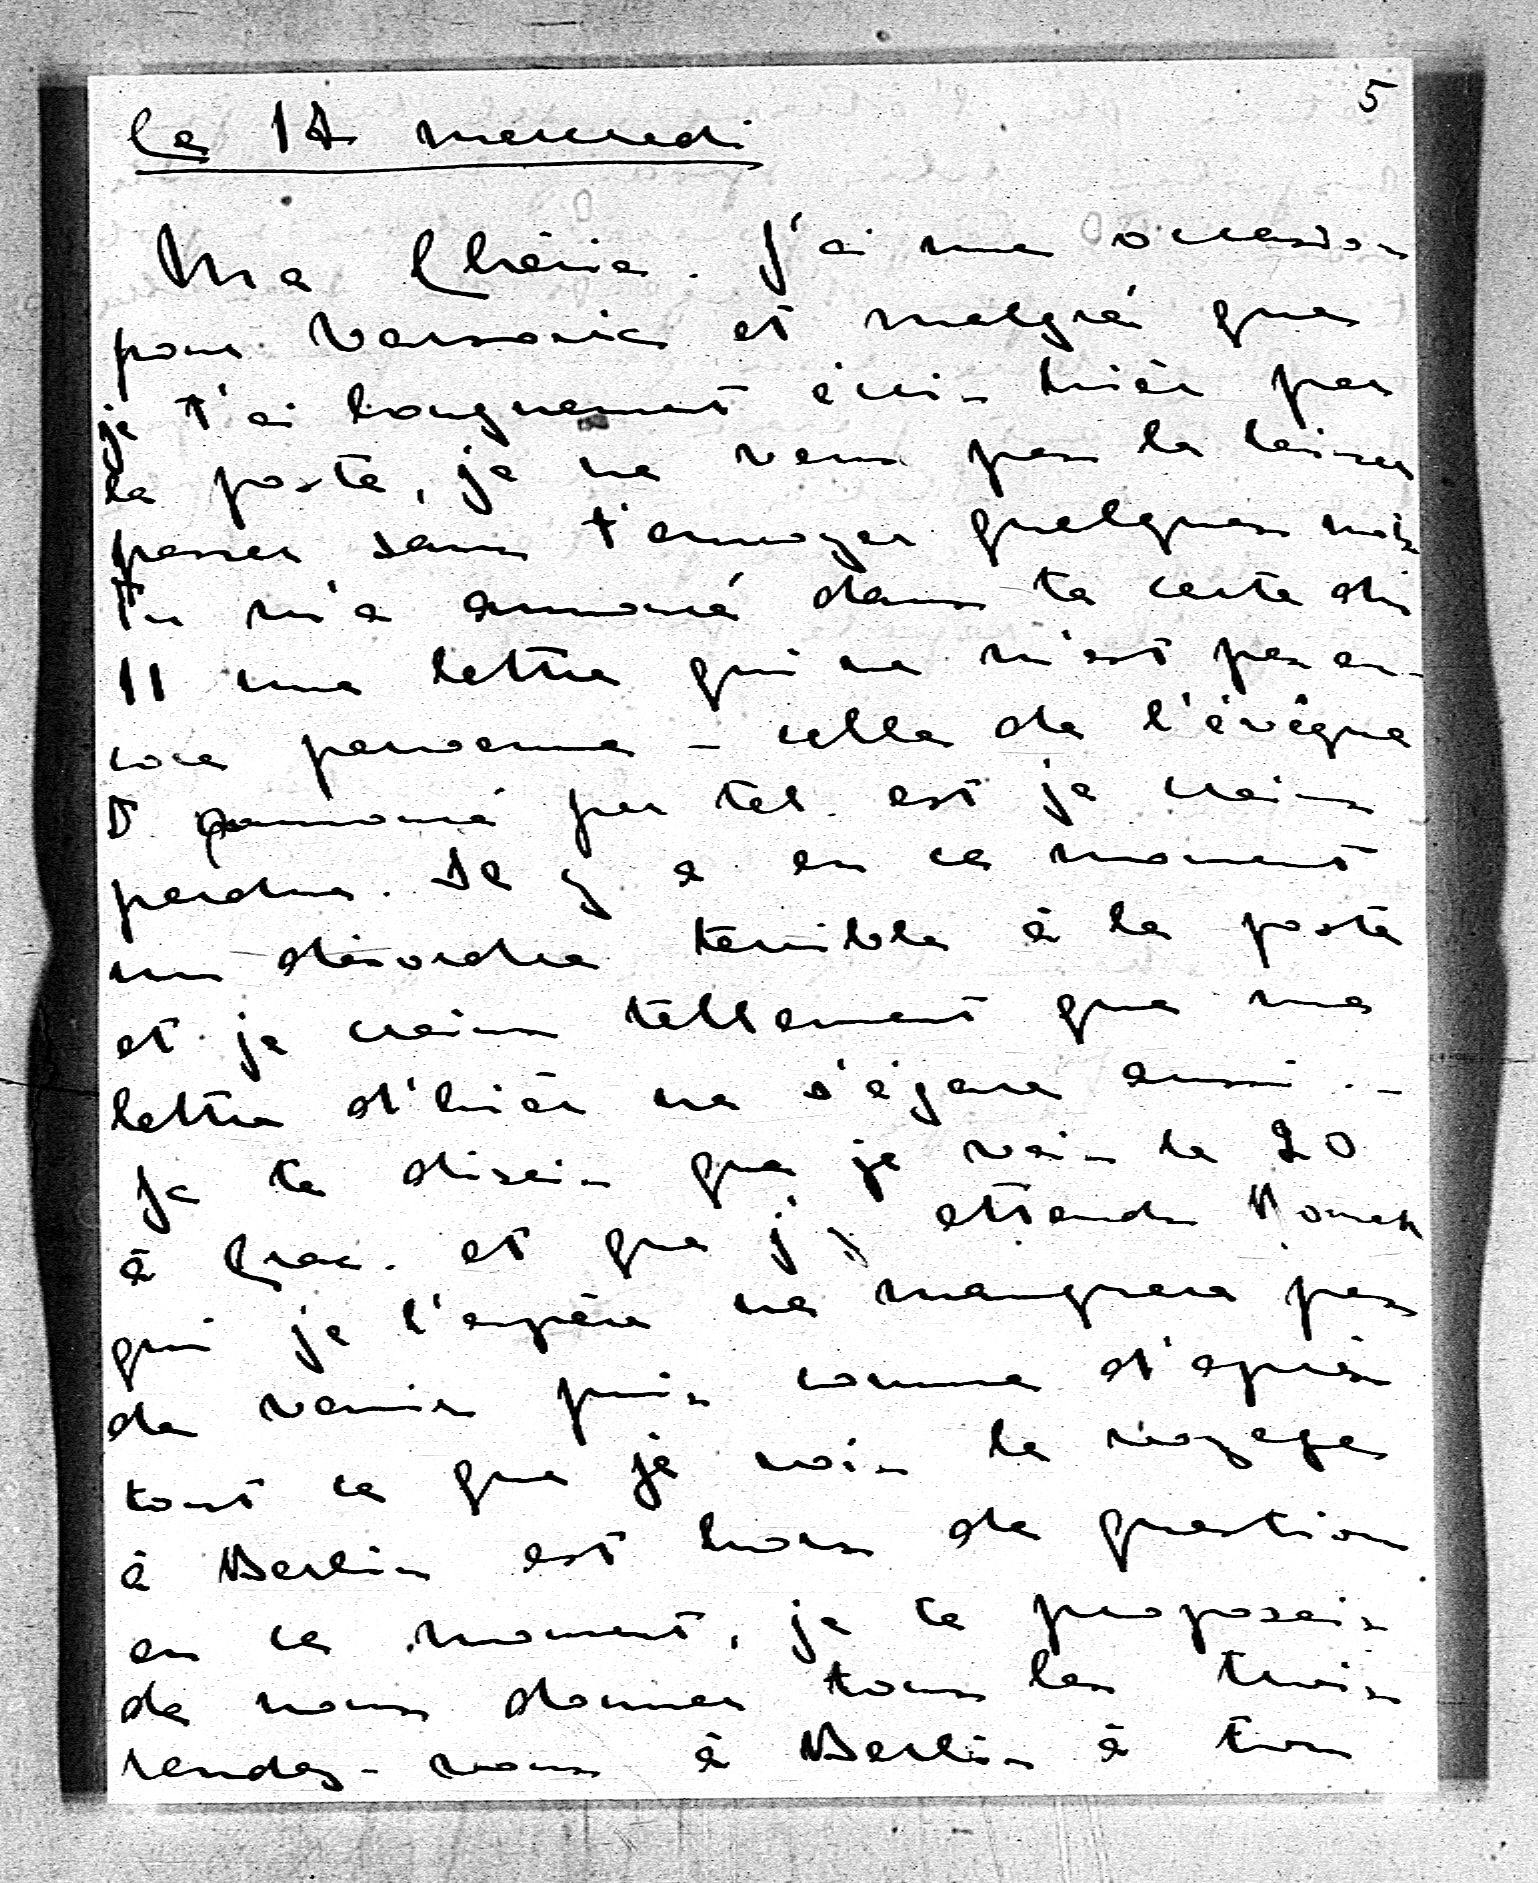 5
le 14 mercredi
Ma Chérie. J'ai une occasion
pour Varsovie et malgré que
je t'ai longuement écris hièr par
la poste, je ne veux pas la laisser
passer sans t'envoyer quelques mots
Tu m'a annoncé dans ta carte du
11 une lettre qui ne m'est pas en-
core parvenue – celle de l'évêque
annoncé par tel. est je crains
perdue. Il y a en ce moment
un désordre terrible à la poste
et je crains tellement que ma
lettre d'hièr ne s'égare aussi. –
Je te disais que je vais le 20
à Crac. et que j'y attends
qui je l'espère ne manquera pas
de venir puis comme d'après
tout ce que je vois le voyage
à Berlin est hors de question
en ce moment, je te proposais
de nous donner tous les trois
rendez-vous à Berlin à ton